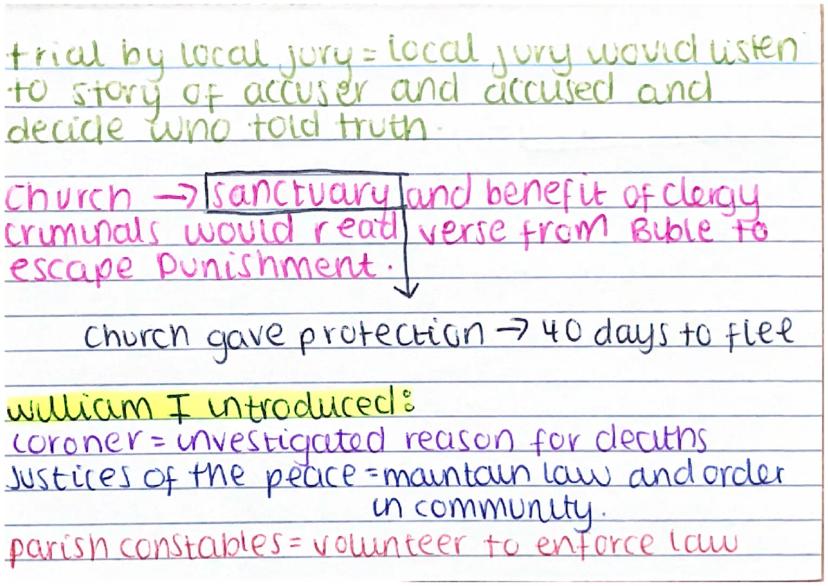 trial by local jury = local jury would listen
to story of accuser and accused and
decide who told truth.
church → sanctuary and benefit of clergy
criminals would read verse from Bible to
escape punishment.
church gave protection → 40 days to flee
william I introduced:
coroner = investigated reason for deaths
Justices of the peace = maintain law and order
in community.
parish constables = volunteer to enforce law